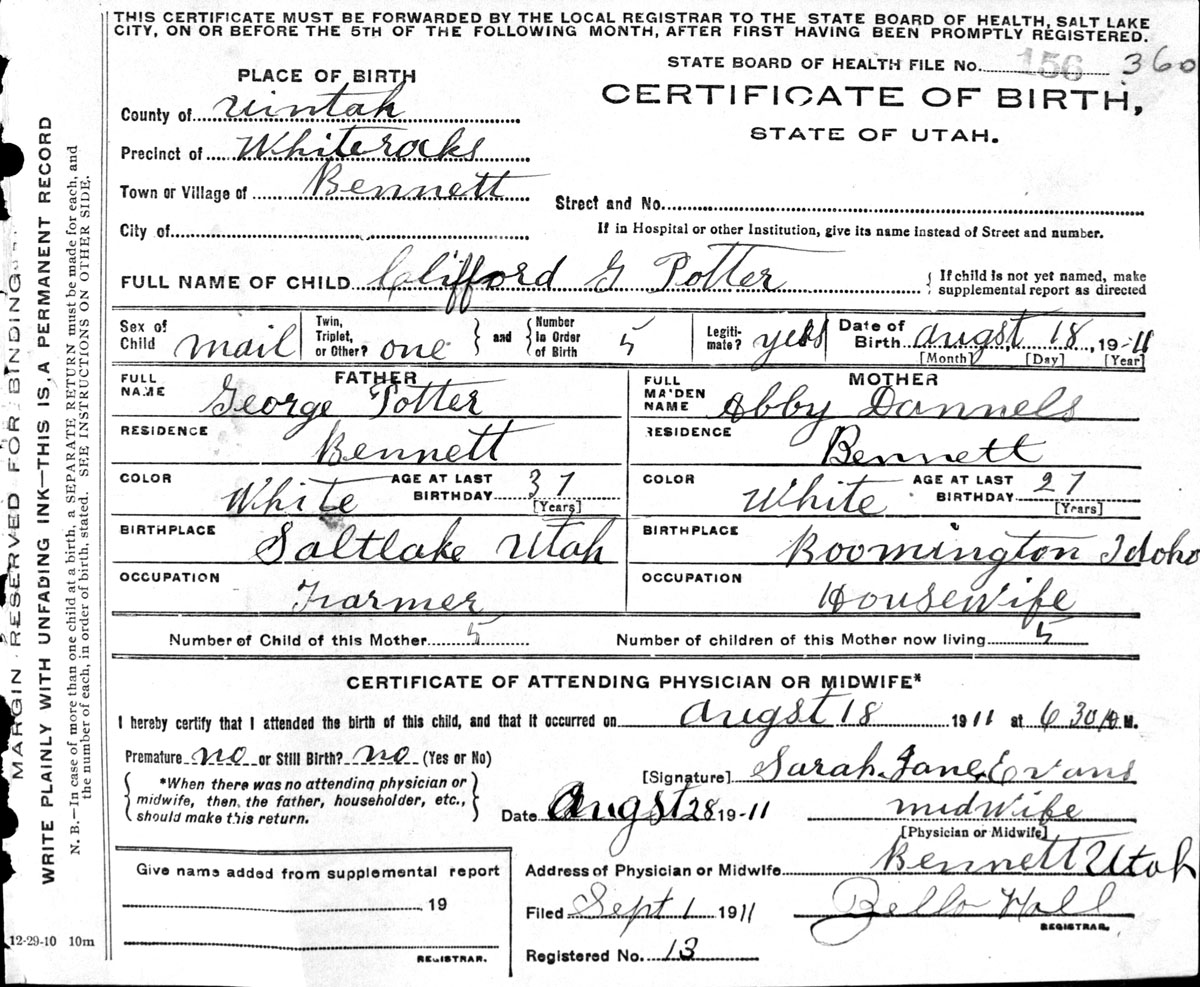 THIS CERTIFICATE MUST BE FORWARDED BY THE LOCAL REGISTRAR TO THE STATE BOARD OF HEALTH, SALT LAKE
CITY, ON OR BEFORE THE 5TH OF THE FOLLOWING MONTH, AFTER FIRST HAVING BEEN PROMPTLY REGISTERED.
STATE BOARD OF HEALTH FILE NO. 156 360
PLACE OF BIRTH
CERTIFICATE OF BIRTH,
STATE OF UTAH.
County of Uintah
Precinct of Whiterocks
Town or Village of Bennett
Street and No.
City of
If in Hospital or other Institution, give its name instead of Street and number.
FULL NAME OF CHILD Clifford G Potter
{ If child is not yet named, make
supplemental report as directed
Sex of Child mail
Twin, Triplet, or Other? one } and { Number in Order of Birth 5
Legitimate? yess
Date of Birth augst 18, 19-11
[Month] [Day] [Year]
FATHER
FULL NAME George Potter
RESIDENCE Bennett
COLOR White AGE AT LAST BIRTHDAY 37
[Years]
BIRTHPLACE Saltlake Utah
OCCUPATION Frarmer
MOTHER
FULL MAIDEN NAME Abby Dannels
RESIDENCE Bennett
COLOR White AGE AT LAST BIRTHDAY 27
[Years]
BIRTHPLACE Roomington Idoho
OCCUPATION Housewife
Number of Child of this Mother 5
Number of children of this Mother now living 5
CERTIFICATE OF ATTENDING PHYSICIAN OR MIDWIFE*
I hereby certify that I attended the birth of this child, and that it occurred on augst 18 1911 at 6 30 A M.
Premature no or Still Birth? no (Yes or No)
{ *When there was no attending physician or
midwife, then the father, householder, etc.,
should make this return. }
[Signature] Sarah Jane Evans
Date Augst 28 19-11
midwife
[Physician or Midwife]
Address of Physician or Midwife Bennett Utah
Filed Sept 1 1911 Bello Hall
REGISTRAR.
Registered No. 13
Give name added from supplemental report
19
REGISTRAR.
12-29-10 10m
MARGIN RESERVED FOR BINDING
WRITE PLAINLY WITH UNFADING INK—THIS IS A PERMANENT RECORD
N. B.—In case of more than one child at a birth, a SEPARATE RETURN must be made for each, and
the number of each, in order of birth, stated. SEE INSTRUCTIONS ON OTHER SIDE.